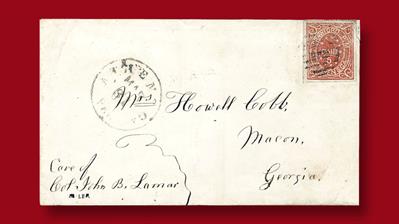 ATHENS
GA
Mrs Howell Cobb.
Macon,
Georgia.
Care of
Col John B. Lamar